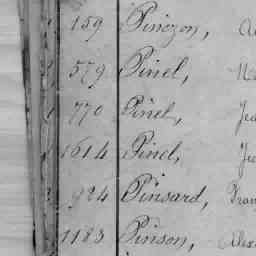 159 Pinczon,
579 Pinel,
770 Pinel, Jea
1614 Pinel, Je
924 Pinsard, Fran
1183 Pinson, Alex